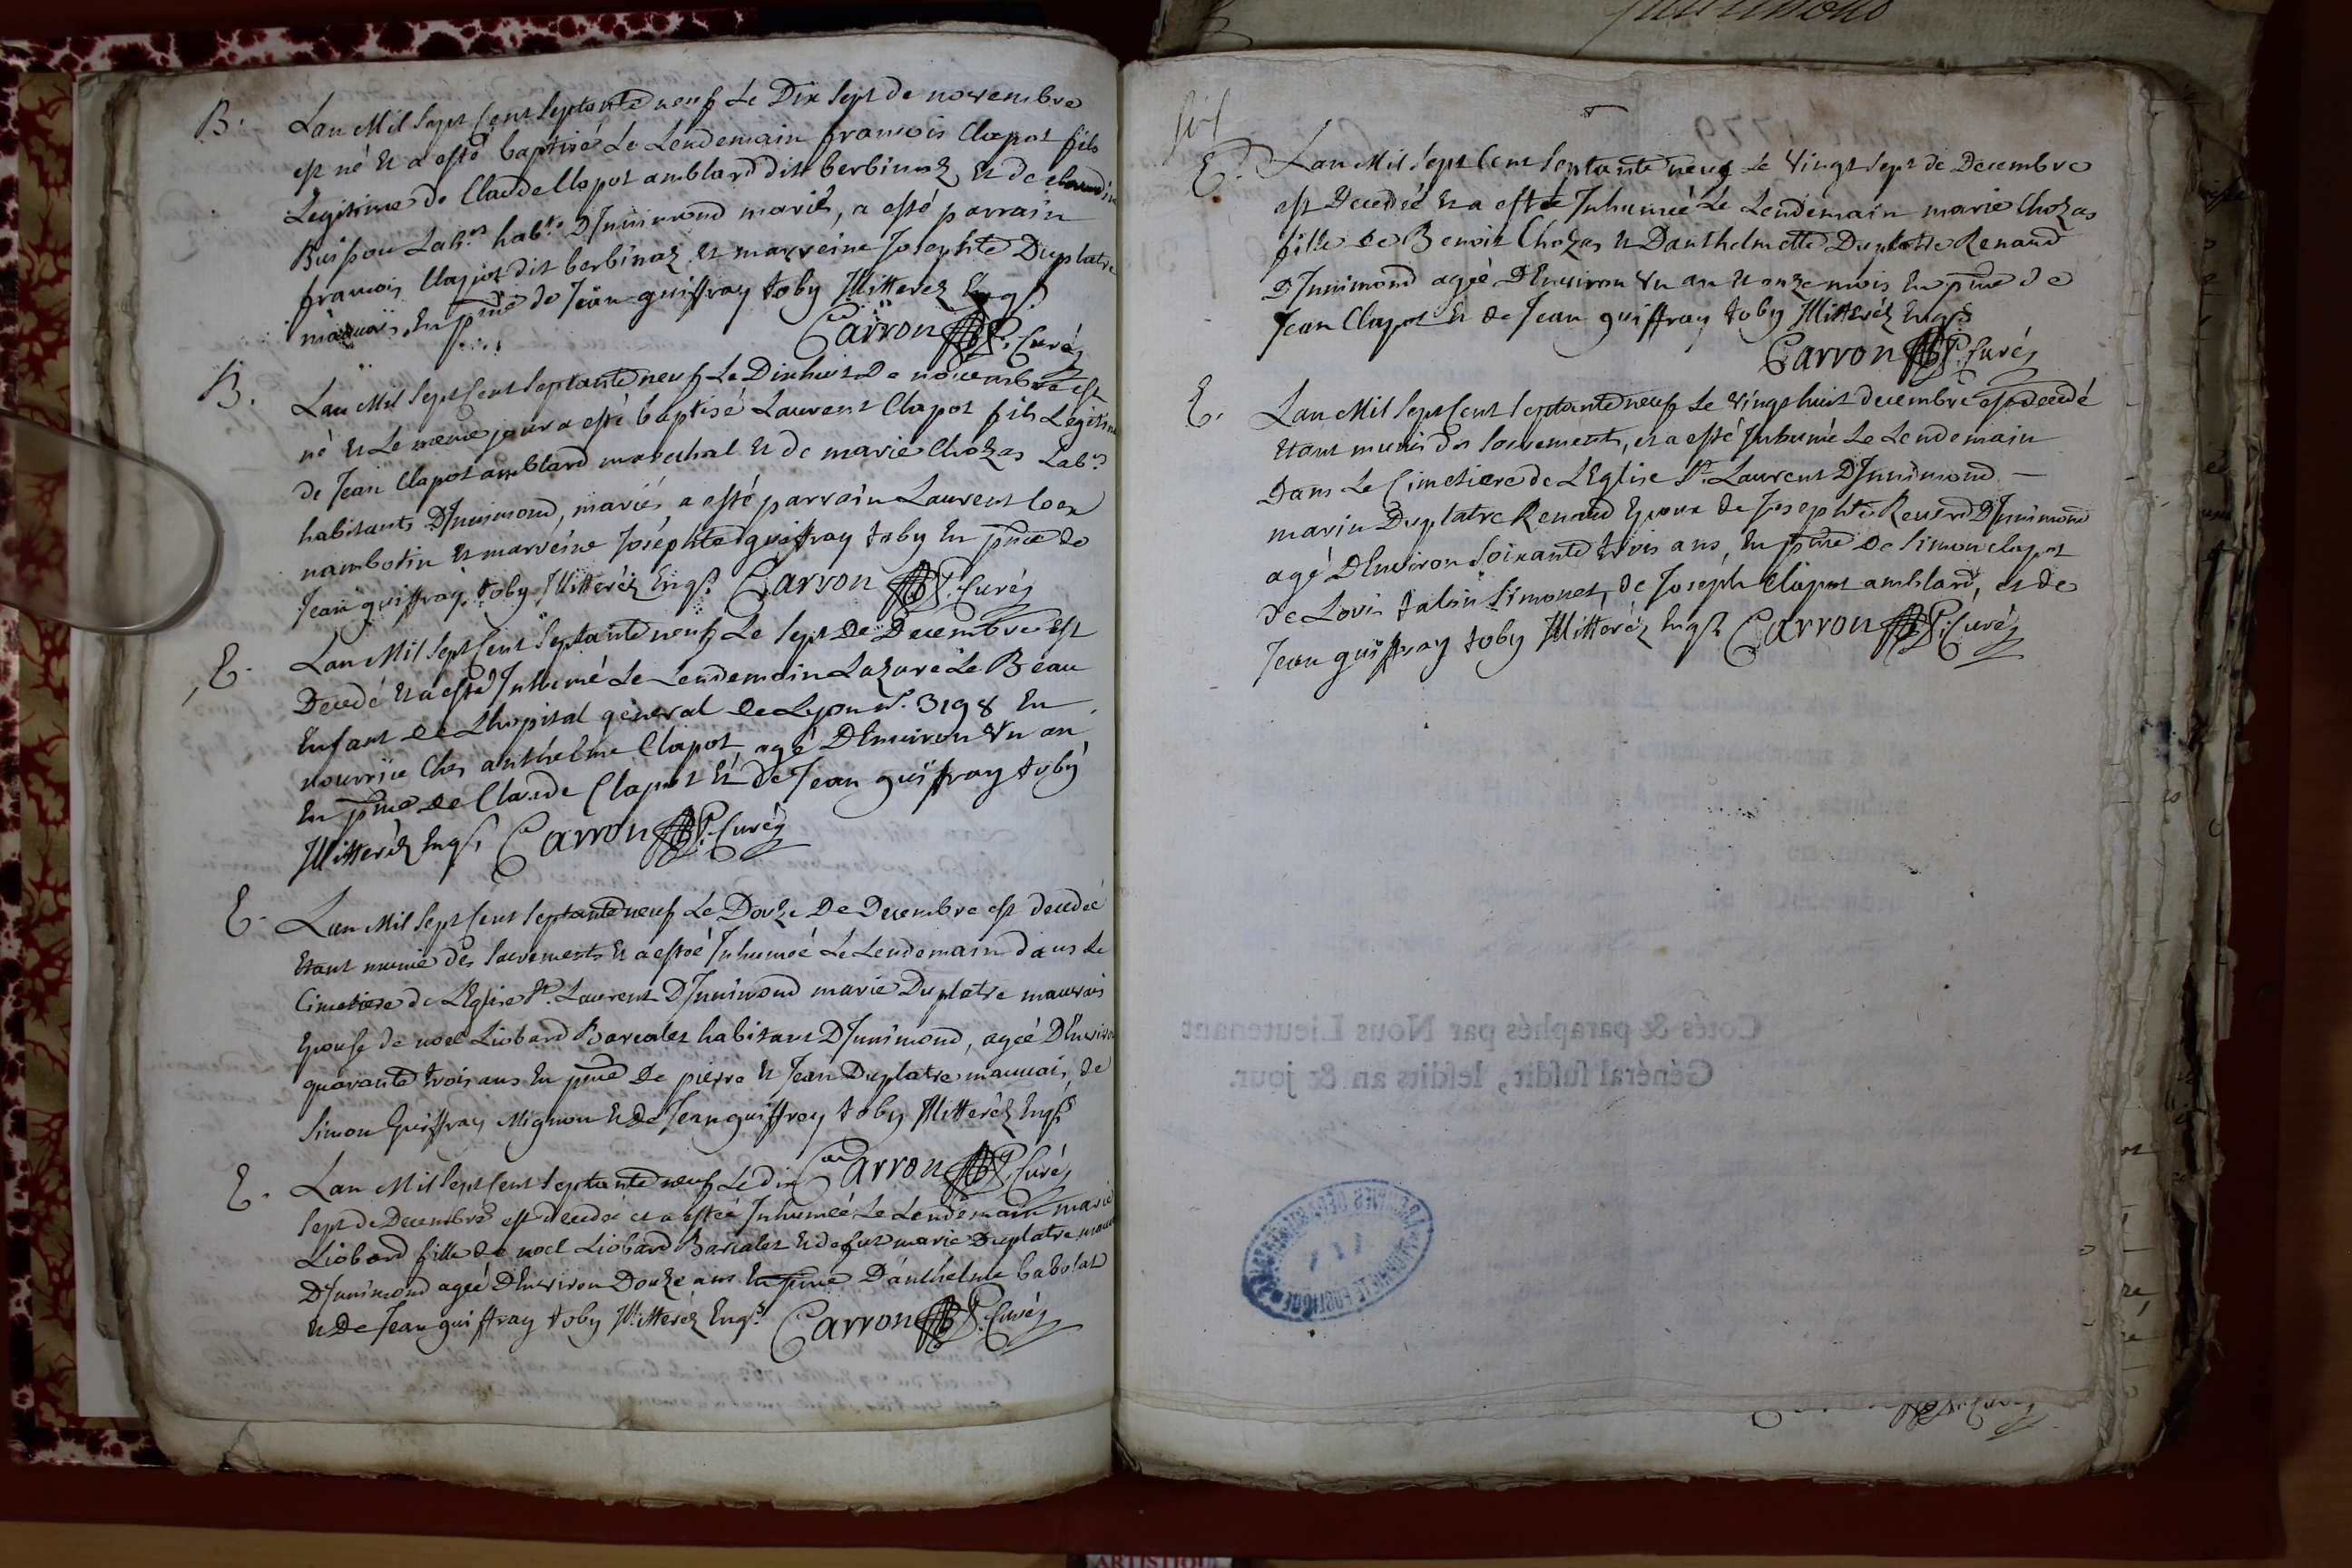 B. Lan Mil Sept Cent Septante neuf Le Dix Sept de novembre
est né Et a esté baptisé Le Lendemain francois Clapot fils
Legitime de Claude Clapot amblard dit berbinaz Et de claudine
Buisson Lab.rs hab.ts DInnimond mariés, a esté parrain
francois Clapot dit berbinaz Et marreine Josephte Duplatre
mauvais En pñce de Jean guiffray toby Illitterez Enqs
Carron P. Curéz
B. Lan Mil Sept Cent Septante neuf Le Dixhuit De novembre est
né Et Le meme jour a esté baptisé Laurent Clapot fils Legitime
de Jean Clapot amblard marechal Et de marie Chozas Lab.rs
habitants DInnimond, mariés a esté parrain Laurent
nambotin Et marreine Joséphte guiffray toby En pñce de
Jean guiffray toby Illitteréz Enqs. Carron P. Curéz
E. Lan Mil Sept Cent Septante neuf Le Sept De Decembre est
Decedé Et a esté Inhumé Le Lendemain Lazare Le Beau
Enfant de Lhopital géneral de Lyon n.° 3198 En
nourrice Chez anthelme Clapot, agé DEnviron Vn an
En pñce de Claude Clapot Et de Jean guiffray toby
Illitteréz Enqs, Carron P. Curéz
E. Lan Mil Sept Cent Septante neuf Le Douze De Decembre est decedée
Etant munie des Sacrements Et a estée Inhumée Le Lendemain dans Le
Cimetiere de LEglise St. Laurent DInnimond marie Duplatre mauvais
Epouse de noel Liobard Barcalet habitant DInnimond, agée DEnviron
quarante trois ans En pñce De pierre Et Jean Duplatre mauvais, de
Simon Guiffray Mignon Et de Jean guiffray toby Illitteréz Enqs
Carron P. Curéz
E. Lan Mil Sept Cent Septante neuf Le dix
Sept de Decembre est decedée et a estée Inhumée Le Lendemain marie
Liobard fille de noel Liobard Barcalet Et de fut marie Duplatre mauvais
DInnimond agée DEnviron Douze ans En pñce Danthelme babolat
Et De Jean guiffray toby Illitteréz Enqs. Carron P. Curéz
E. Lan Mil Sept Cent Septante neuf Le Vingt Sept de Decembre
est Decedée Et a esté Inhumée Le Lendemain marie Chozas
fille de Benoit Chozas Et Danthelmette Duplatre Renaud
DInnimond agée DEnviron Vn an Et onze mois En pñce de
Jean Clapot Et de Jean guiffray toby Illitteréz Enqs
Carron P. Curéz
E. Lan Mil Sept Cent Septante neuf Le Vingt huit decembre est decedé
Etant munis des Sacrements, et a esté Inhumé Le Lendemain
Dans Le Cimetiere de LEglise St. Laurent DInnimond
marin Duplatre Renaud Epoux de Josephte Renard DInnimond
agé DEnviron Soixante trois ans, En pñce de Simon clapot
de Lovis talon Simonet, de Joséph Clapot amblard, et de
Jean guiffray toby Illitteréz Enqs Carron P. Curéz
Cotés & paraphés par Nous Lieutenant
Général susdit, lesdits an & jour.
ARTISTIQUE